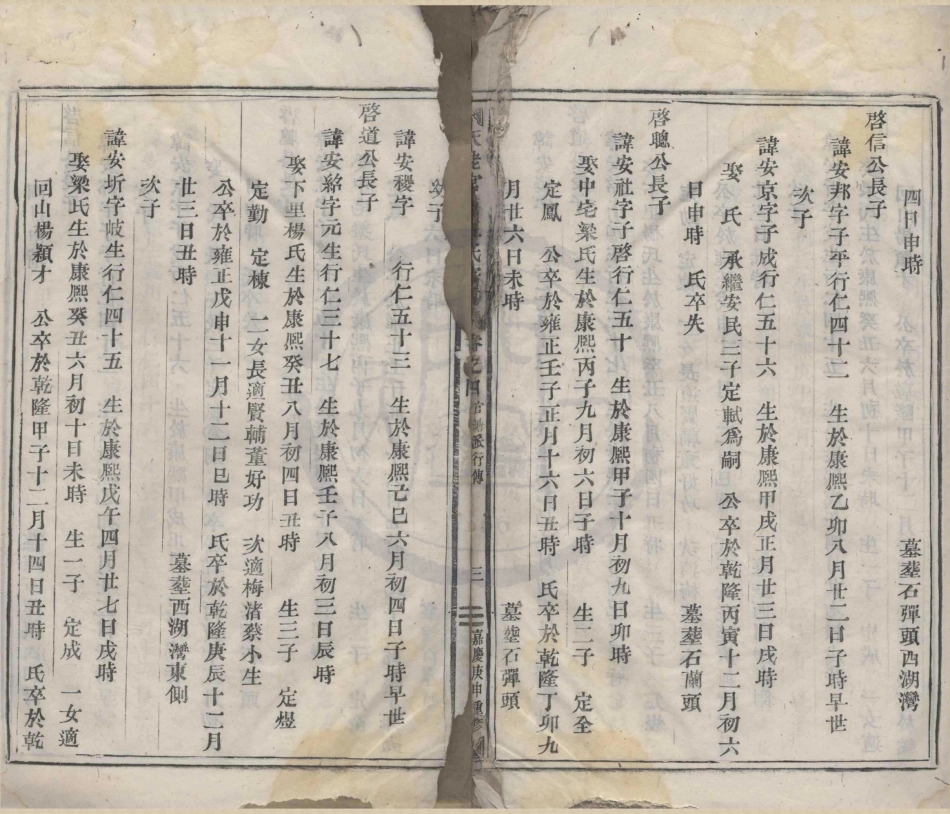 四日申時　墓塟石彈頭西湖灣
啓信公長子
諱安邦字子平行仁四十二　生於康熙乙卯八月廿二日子時早世
次子
諱安京字子成行仁五十六　生於康熙甲戌正月廿三日戌時
娶　氏　承繼安民三子定軾爲嗣　公卒於乾隆丙寅十二月初六
日申時　氏卒失　墓塟石蘭頭
啓聰公長子
諱安社字子啓行仁五十　生於康熙甲子十月初九日卯時
娶中宅梁氏生於康熙丙子九月初六日子時　生二子　定全
定鳳　公卒於雍正壬子正月十六日丑時　氏卒於乾隆丁卯九
月廿六日未時　墓塟石彈頭
卷之四　行傳　三　嘉慶庚申重修
次子
諱安稷字　行仁五十三　生於康熙己巳六月初四日子時早世
啓道公長子
諱安綸字元生行仁三十七　生於康熙壬子八月初三日辰時
娶下里楊氏生於康熙癸丑八月初四日丑時　生三子　定煜
定勤　定棟　二女長適賢輔董好功　次適梅渚蔡小生
公卒於雍正戊申十一月十二日巳時　氏卒於乾隆庚辰十二月
廿三日丑時　墓塟西湖灣東側
次子
諱安圻字岐生行仁四十五　生於康熙戊午四月廿七日戌時
娶梁氏生於康熙癸丑六月初十日未時　生一子　定成　一女適
回山楊穎才　公卒於乾隆甲子十二月十四日丑時　氏卒於乾